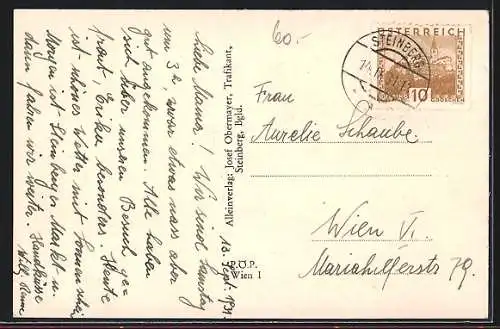 60.-
ÖSTERREICH
10
GROSCHEN
STEINBERG
Liebe Mama! Wir sind Samstag
um 3h, zwar etwas nass aber
gut angekommen. Alle haben
sich über unseren Besuch ge-
freut, Erika besonders. Heute
ist schönes Wetter mit Sonnenschein
Morgen ist Steinberger Markt u.
dann fahren wir weiter. Handküsse
Willy
13. Sept. 1931.
Alleinverlag: Josef Obermayer, Trafikant,
Steinberg, Bgld.
P.Ö.P.
Wien I
Frau
Aurelie Schaube
Wien VI.
Mariahilferstr 79.